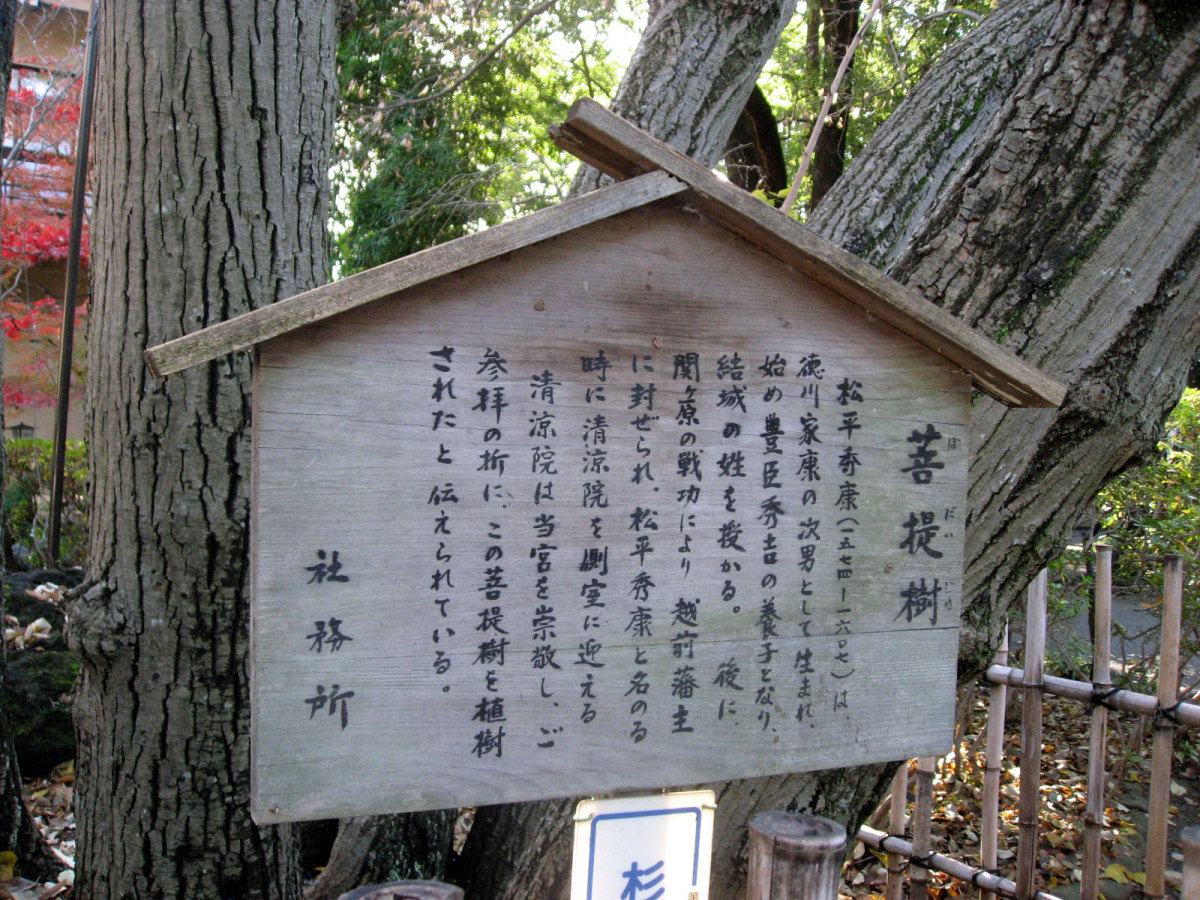 菩提樹
ぼだいじゅ
松平秀康(一五七四-一六〇七)は、
徳川家康の次男として生まれ、
始め豊臣秀吉の養子となり、
結城の姓を授かる。後に
関ヶ原の戦功により越前藩主
に封ぜられ、松平秀康と名のる
時に清涼院を側室に迎える
清涼院は当宮を崇敬し、ご
参拝の折に、この菩提樹を植樹
されたと伝えられている。
社務所
杉